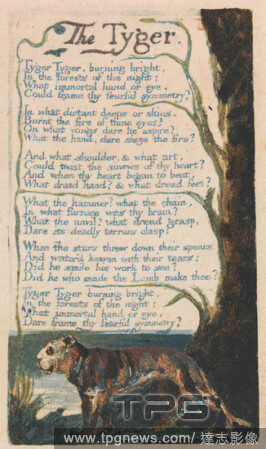 The Tyger.
Tyger Tyger. burning bright,
In the forests of the night:
What immortal hand or eye.
Could frame thy fearful symmetry?
In what distant deeps or skies.
Burnt the fire of thine eyes?
On what wings dare he aspire?
What the hand, dare sieze the fire?
And what shoulder, & what art,
Could twist the sinews of thy heart?
And when thy heart began to beat,
What dread hand? & what dread feet?
What the hammer? what the chain,
In what furnace was thy brain?
What the anvil? what dread grasp,
Dare its deadly terrors clasp!
When the stars threw down their spears
And water'd heaven with their tears:
Did he smile his work to see?
Did he who made the Lamb make thee?
Tyger Tyger burning bright,
In the forests of the night:
What immortal hand or eye,
Dare frame thy fearful symmetry?
TPG
www.tpgnews.com / 達志影像